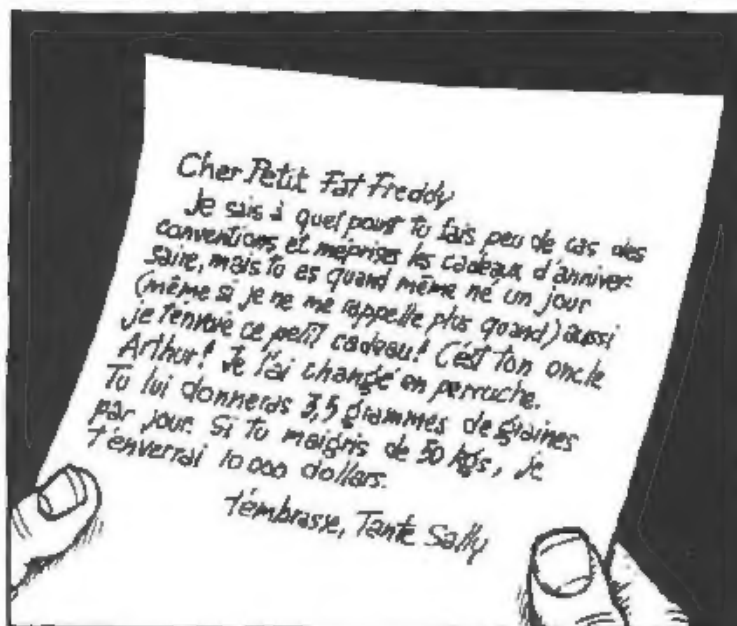 Cher Petit Fat Freddy
Je sais à quel point tu fais peu de cas des
conventions, et méprises les cadeaux d'anniver-
saire, mais tu es quand même né un jour
(même si je ne me rappelle plus quand) aussi
je t'envoie ce petit cadeau! C'est ton oncle
Arthur! Je l'ai changé en perruche.
Tu lui donneras 3,5 grammes de graines
par jour. Si tu maigris de 50 kgs, je
t'enverrai 10 000 dollars.
t'embrasse, Tante Sally